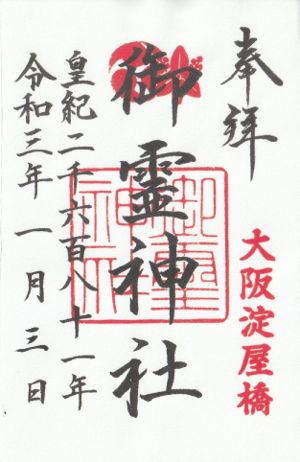 奉拝
大阪淀屋橋
御霊神社
御霊神社
皇紀二千六百八十一年
令和三年一月三日